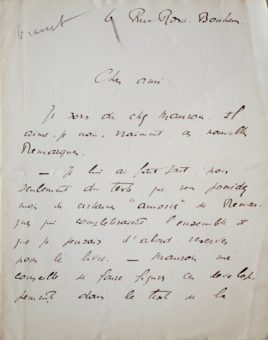 6 Rue Rosa Bonheur
Cher ami.
Je sors de chez Manson. Il
aime, je crois, vraiment ces nouvelles
Remarques.
— Je lui ai fait part, non
seulement du texte que vous possédez
mais de certaines "amorces" de Remar-
ques qui complèteraient l'ensemble et
que je pensais d'abord réserver
pour le livre. — Manson me
conseille de faire figurer ces dévelop-
pements dans le texte de la